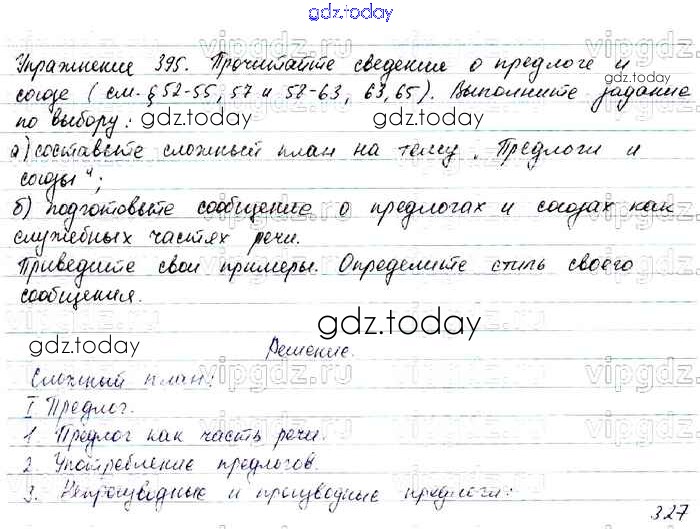 gdz.today
Упражнение 395. Прочитайте сведение о предлоге и
gdz.today
союзе (см. § 52-55, 57 и 58-63, 63,65). Выполните задание
по выбору:
gdz.today
gdz.today
а) составьте сложный план на тему „Предлоги и
союзы“;
б) подготовьте сообщение о предлогах и союзах как
служебных частях речи.
Приведите свои примеры. Определите стиль своего
сообщения.
gdz.today
gdz.today
Решение.
Сложный план:
I Предлог.
1. Предлог как часть речи.
2. Употребление предлогов.
gdz.today
3. Непроизводные и производные предлоги:
327
vipgdz.ru